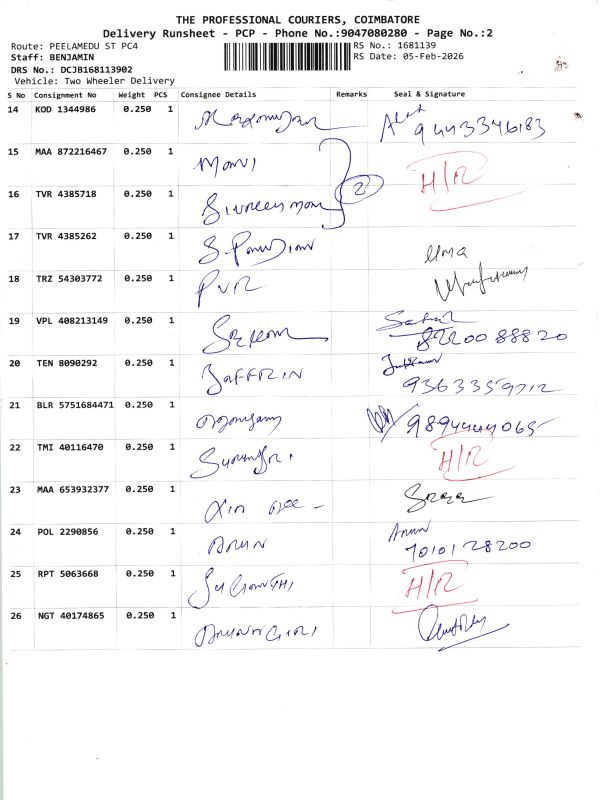 THE PROFESSIONAL COURIERS, COIMBATORE
Delivery Runsheet - PCP - Phone No.:9047080280 - Page No.:2
Route: PEELAMEDU ST PC4 RS No.: 1681139
Staff: BENJAMIN RS Date: 05-Feb-2026
DRS No.: DCJB168113902
Vehicle: Two Wheeler Delivery
S No Consignment No Weight PCS Consignee Details Remarks Seal & Signature
14 KOD 1344986 0.250 1 9443346183
15 MAA 872216467 0.250 1 Mani H/R
2
16 TVR 4385718 0.250 1
17 TVR 4385262 0.250 1 Uma
18 TRZ 54303772 0.250 1 PVR
19 VPL 408213149 0.250 1
20 TEN 8090292 0.250 1 JAFFRIN 9363359712
21 BLR 5751684471 0.250 1
22 TMI 40116470 0.250 1 H/R
23 MAA 653932377 0.250 1
24 POL 2290856 0.250 1 ARUN Arun
7010128200
25 RPT 5063668 0.250 1 H/R
26 NGT 40174865 0.250 1 ARUNAGIRI